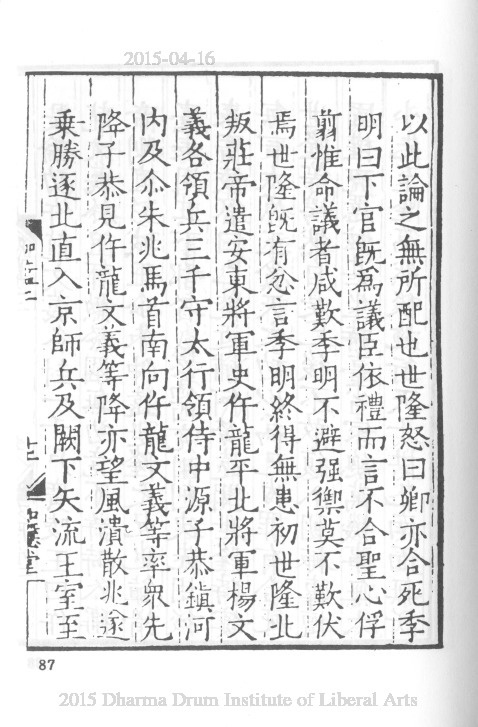 2015-04-16
以此論之無所配也世隆怒曰卿亦合死季
明曰下官旣爲議臣依禮而言不合聖心俘
翦惟命議者咸歎季明不避强禦莫不歎伏
焉世隆旣有忿言季明終得無患初世隆北
叛莊帝遣安東將軍史仵龍平北將軍楊文
義各領兵三千守太行領侍中源子恭鎮河
内及尒朱兆馬首南向仵龍文義等率衆先
降子恭見仵龍文義等降亦望風潰散兆遂
乗勝逐北直入京師兵及闕下矢流王室至
87
2015 Dharma Drum Institute of Liberal Arts